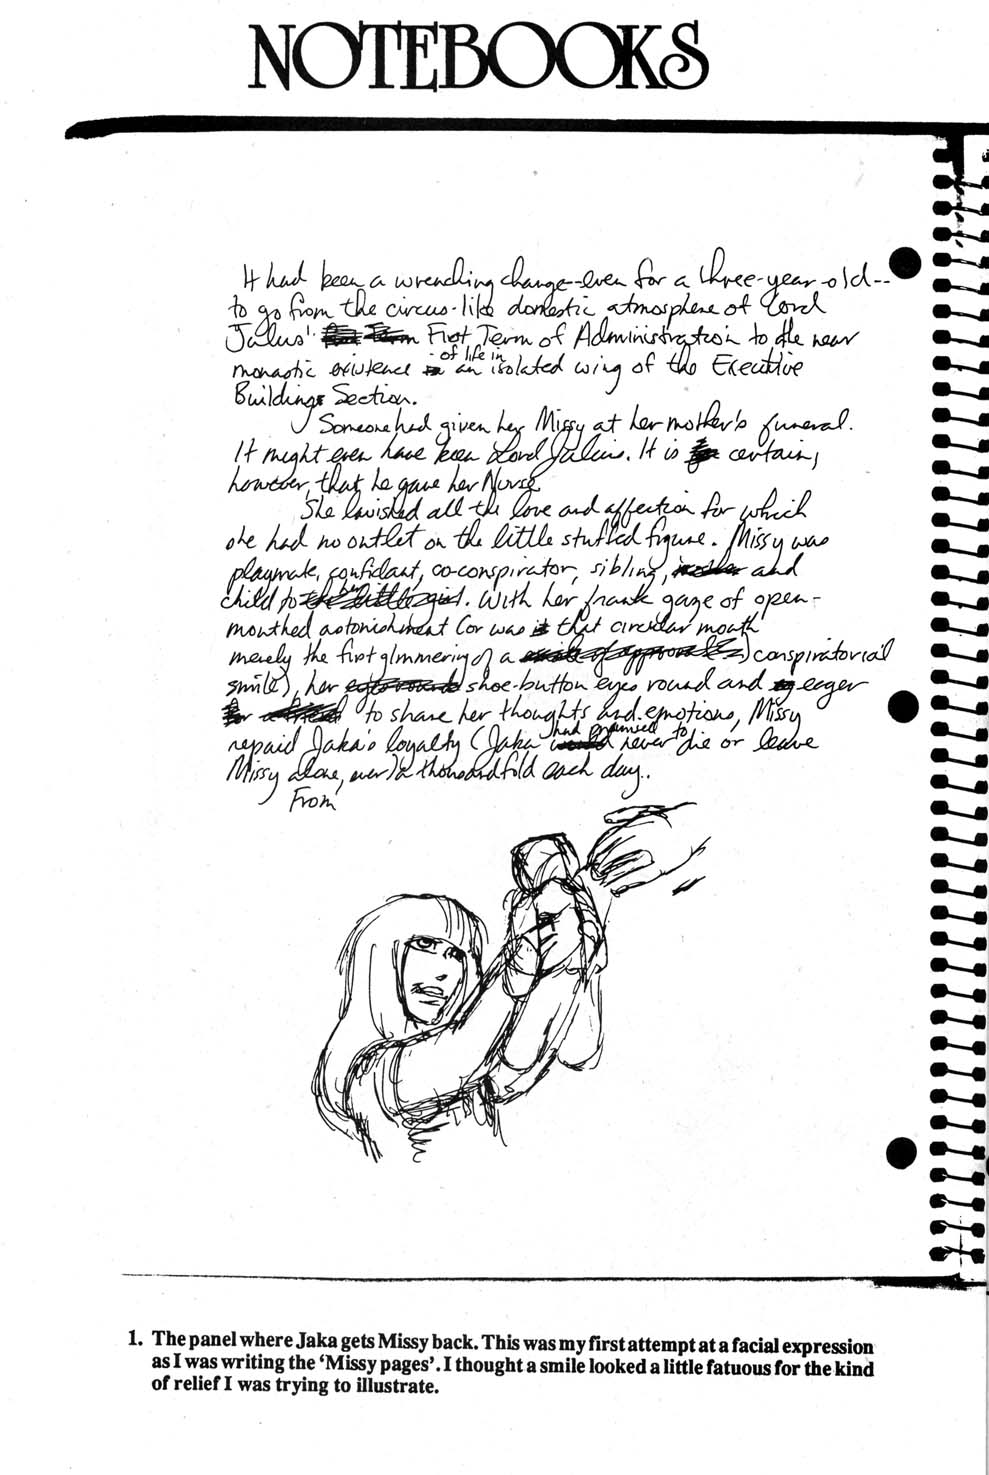 NOTEBOOKS
It had been a wrenching change--even for a three-year-old--
to go from the circus-like domestic atmosphere of Lord
Julius' First Term of Administration to the near
monastic existence of life in an isolated wing of the Executive
Buildings Section.
Someone had given her Missy at her mother's funeral.
It might even have been Lord Julius. It is certain,
however, that he gave her Nurse.
She lavished all the love and affection for which
she had no outlet on the little stuffed figure. Missy was
playmate, confidant, co-conspirator, sibling, and
child to her. With her frank gaze of open-
mouthed astonishment (or was that circular mouth
merely the first glimmering of a conspiratorial
smile), her shoe-button eyes round and eager
to share her thoughts and emotions, Missy
repaid Jaka's loyalty (Jaka had promised to never die or leave
Missy alone, ever) a thousandfold each day.
From
1. The panel where Jaka gets Missy back. This was my first attempt at a facial expression
as I was writing the ‘Missy pages’. I thought a smile looked a little fatuous for the kind
of relief I was trying to illustrate.